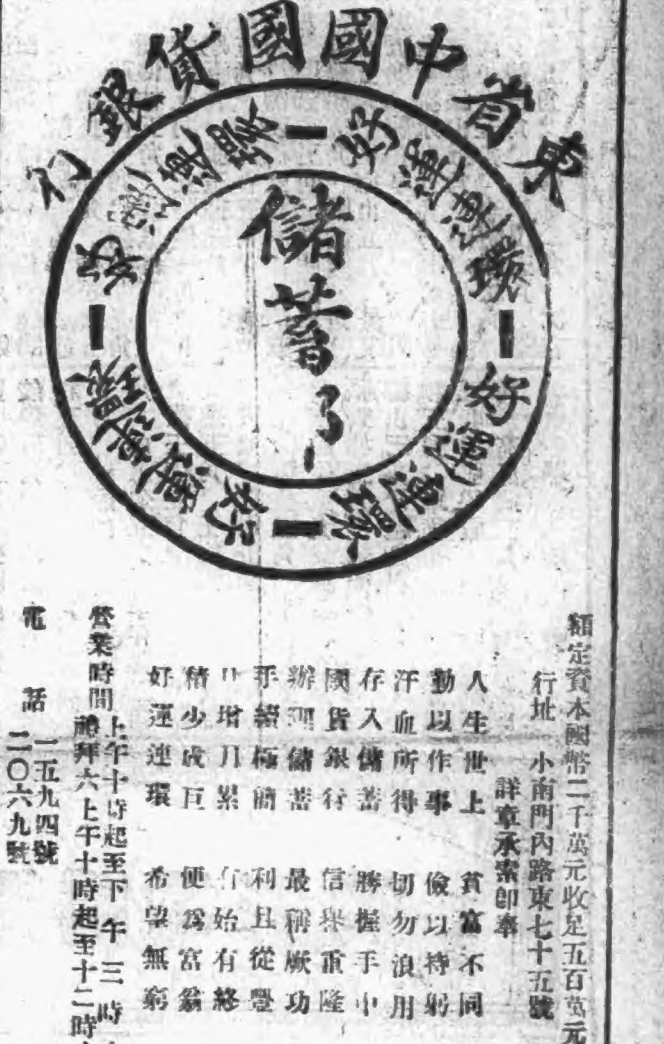 東省中國國貨銀行
好運連環
好運連環
好運連環
好運連環
儲蓄了
額定資本國幣二千萬元收足五百萬元
行址 小南門內路東七十五號
詳章承索即奉
人生世上 貧富不同
勤以作事 儉以持躬
汗血所得 切勿浪用
存入儲蓄 勝握手中
國貨銀行 信譽重隆
辦理儲蓄 最稱厥功
手續極簡 利且從豐
日增月累 有始有終
積少成巨 便為富翁
好運連環 希望無窮
營業時間 上午十時起至下午三時
禮拜六上午十時起至十二時
電話 一五九四號
二〇六九號